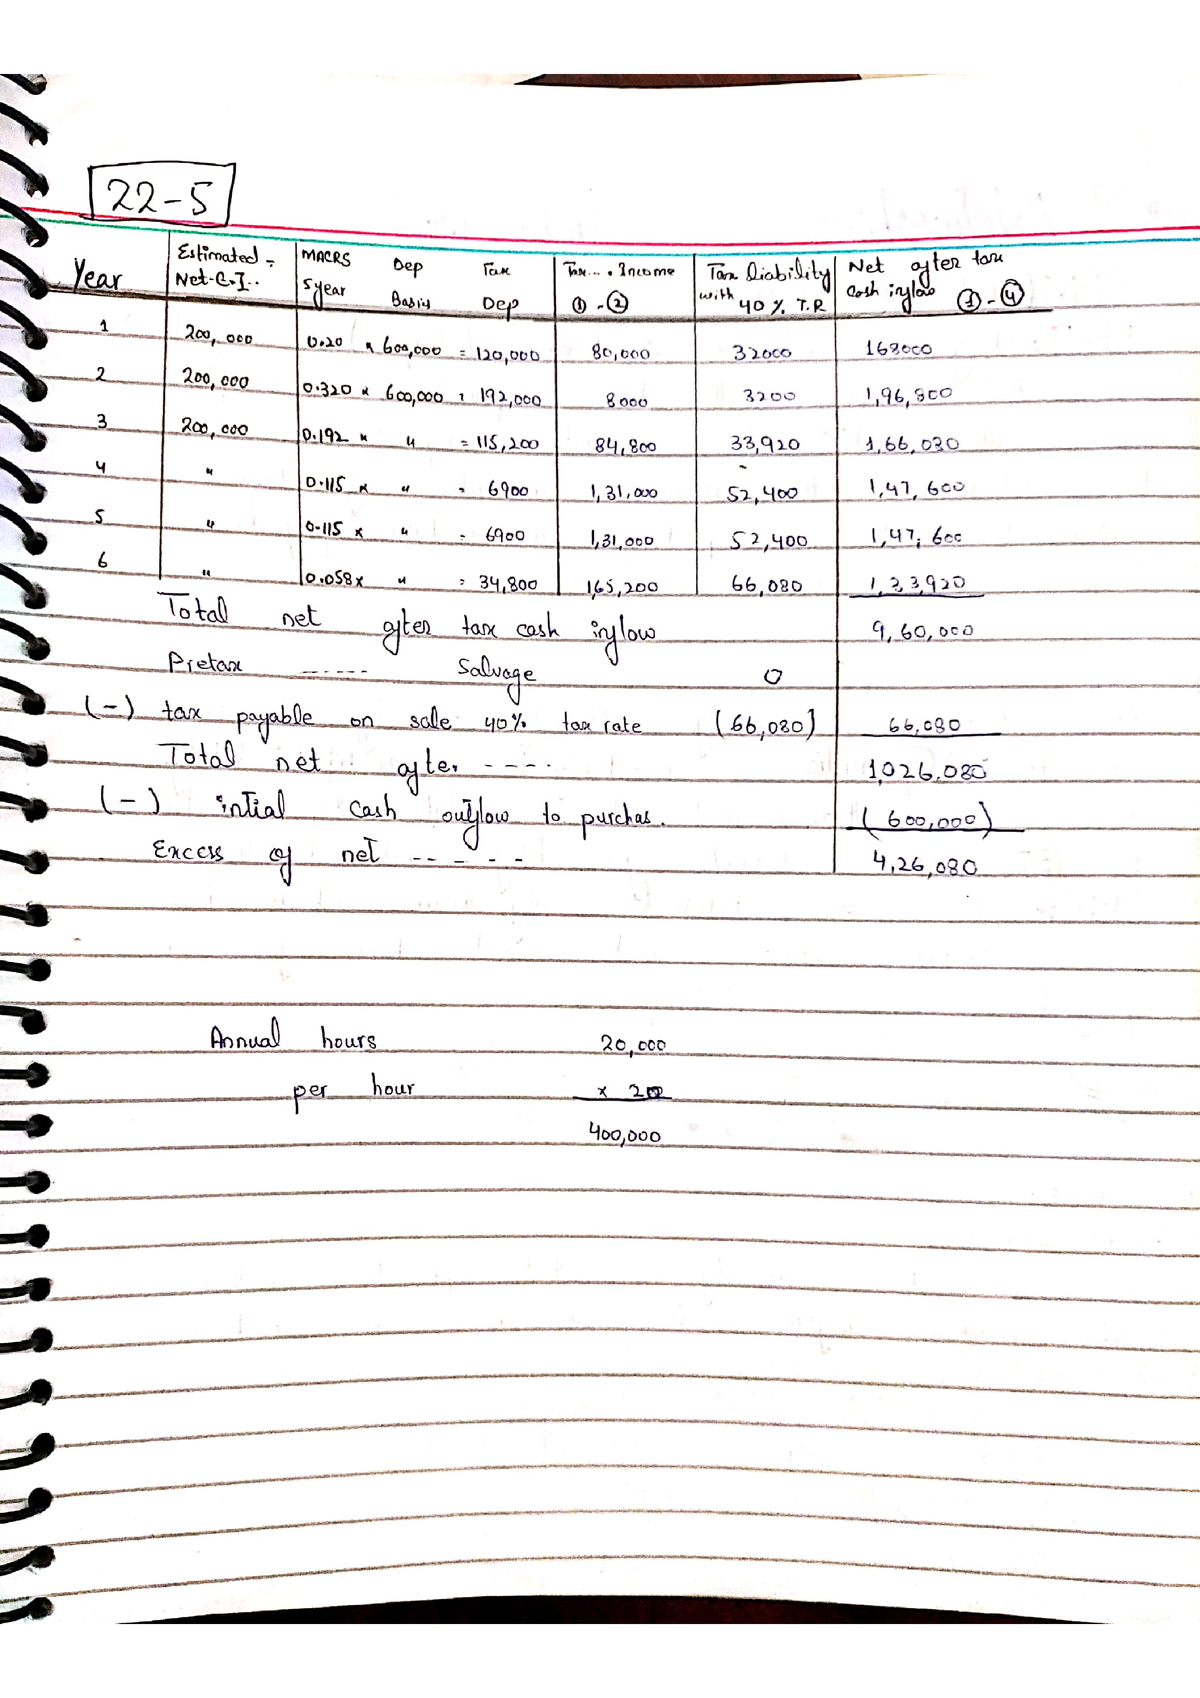 22-5
Year Estimated - Net-C.I.. MACRS 5year Dep Basis Tax Dep Tax... . Income ① - ② Tax Liability with 40 % T.R Net after tax cash inflow ① - ④
1 200,000 0.20 x 600,000 = 120,000 80,000 32000 168000
2 200,000 0.320 x 600,000 = 192,000 8000 3200 1,96,800
3 200,000 0.192 x " = 115,200 84,800 33,920 1,66,080
4 " 0.115 x " = 6900 1,31,000 52,400 1,47,600
5 " 0.115 x " = 6900 1,31,000 52,400 1,47,600
6 " 0.058 x " = 34,800 165,200 66,080 1,33,920
Total net after tax cash inflow 9,60,000
Pretax ----- Salvage 0
(-) tax payable on sale 40% tax rate (66,080) 66,080
Total net after ---- 1,026,080
(-) intial cash outflow to purchas. (600,000)
Excess of net ----- 4,26,080
Annual hours 20,000
per hour x 20
400,000